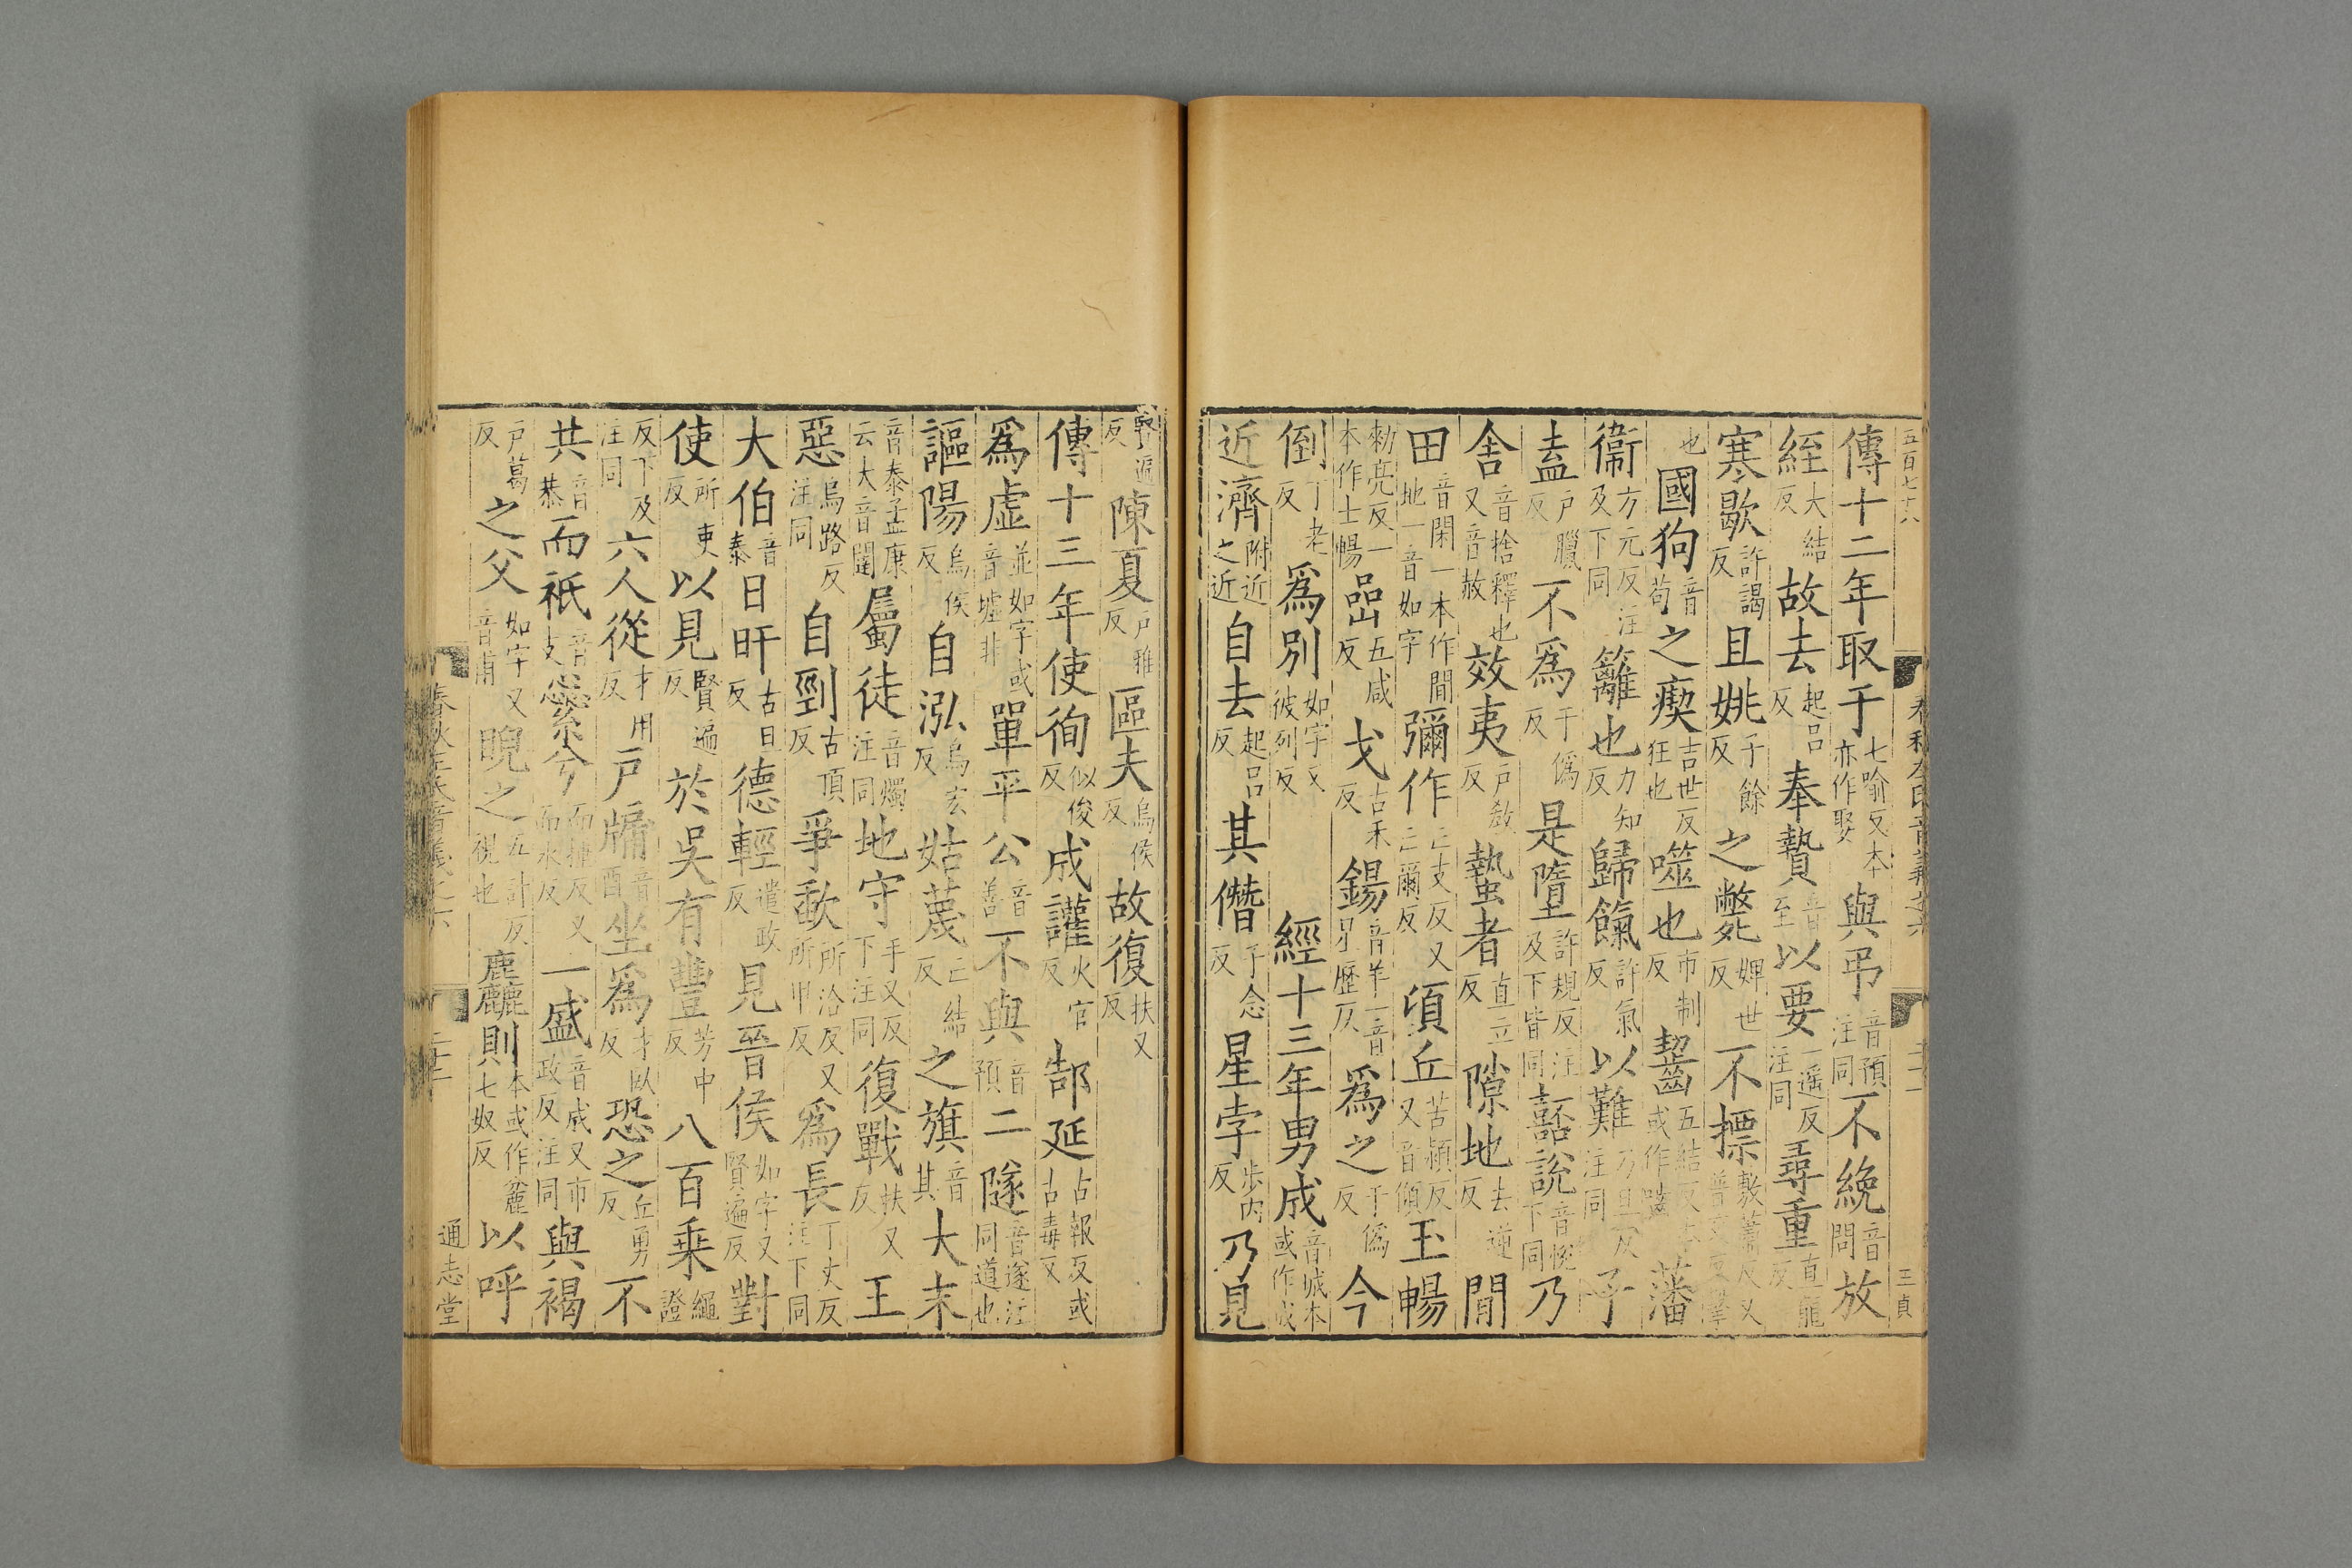 五百七十六
春秋左氏音義之六
二十一
王貞
傳十二年取于七喻反本亦作娶與弔音預注同不絻音問放
絰大結反故去起呂反奉贄音至以要一遥反注同尋重直龍反
寒歇許謁反且姚于餘反之斃婢世反不摽敷蕭反又普交反擊
也國狗音苟之瘈吉世反狂也噬也市制反齧五結反本或作囓藩
衞方元反注及下同籬也力知反歸餼許氣反以難乃旦反注同子
盍戶臘反不爲于僞反是墮許規反注及下皆同嚭說音悅下同乃
舍音捨釋也又音赦效夷戶敎反蟄者直立反隙地去逆反閒
田音閑一本作閒地一音如字彌作亡支反又亡爾反頃丘苦潁反又音傾玉暢
勑亮反一本作士暢嵒五咸反戈古禾反鍚音羊一音星歷反爲之于僞反今
倒丁老反爲別如字又彼列反經十三年男成音城本或作戍
近濟附近之近自去起呂反其僭子念反星孛步内反乃見
賢遍反陳夏戶雅反區夫烏侯反故復扶又反
傳十三年使徇似俊反成讙火官反郜延古報反或古毒反
爲虛並如字或音墟非單平公音善不與音預二隧音遂注同道也
謳陽烏侯反自泓烏宏反姑蔑亡結反之旗音其大末
音泰孟康云大音闥屬徒音燭注同地守手又反下注同復戰扶又反王
惡烏路反注同自剄古頂反爭歃所洽反又所甲反爲長丁丈反注下同
大伯音泰日旰古旦反德輕遣政反見晉侯如字又賢遍反對
使所吏反以見賢遍反於吳有豐芳中反八百乘繩證
反下及注同六人從才用反戶牖音酉坐爲才臥反恐之丘勇反不
共音恭而祇音支繠兮而捶反又而水反一盛音成又市政反注同與褐
戶葛反之父如字又音甫睨之五計反視也麤則本或作麄七奴反以呼
春秋左氏音義之六
二十二
通志堂